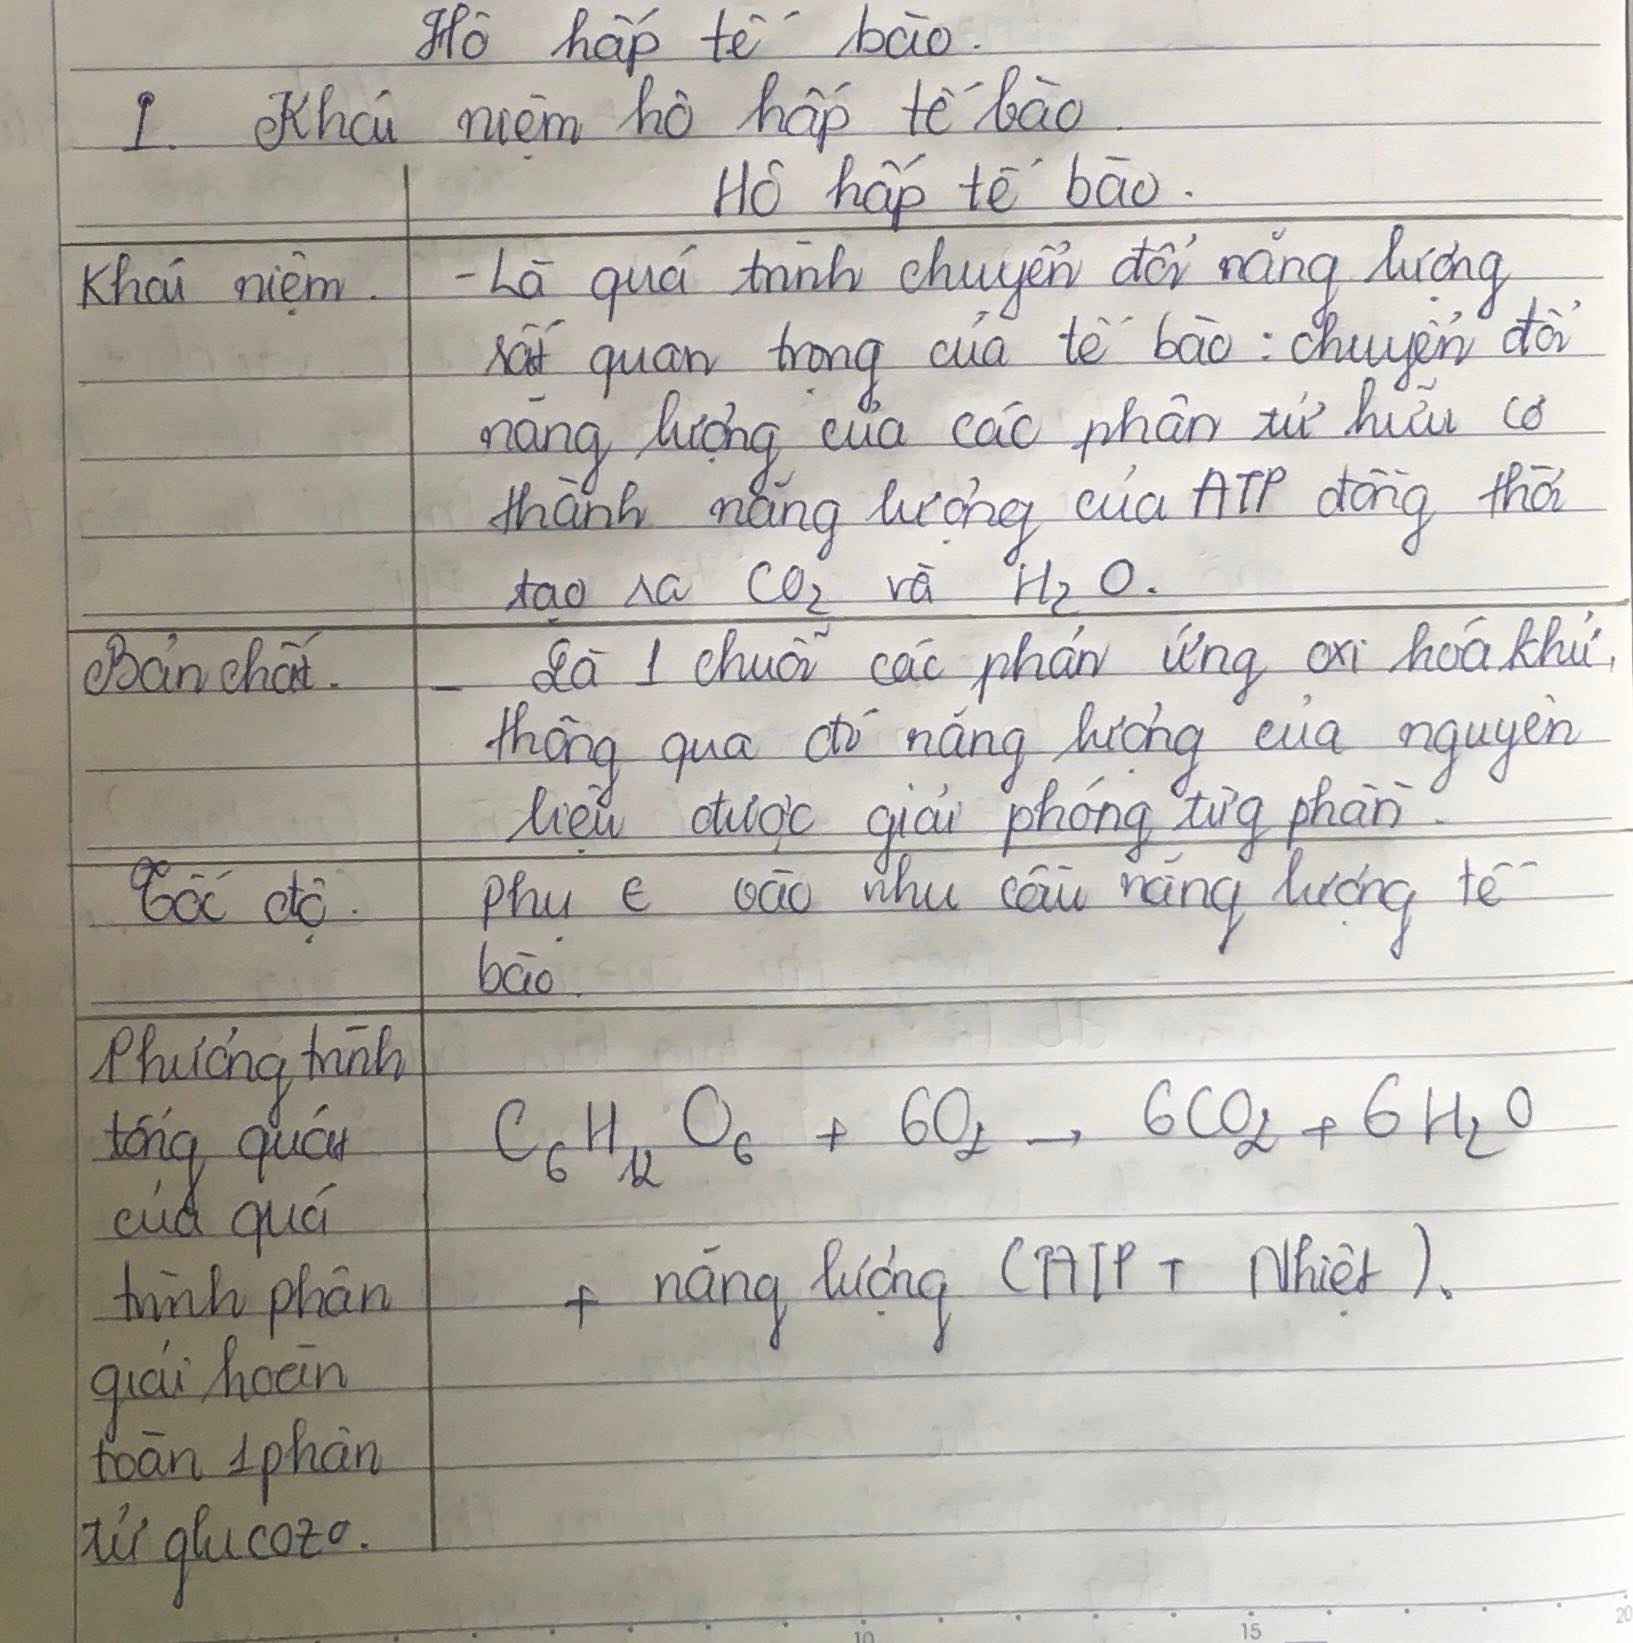 Hô hấp tế bào.
1. Khái niệm hô hấp tế bào.
Hô hấp tế bào.
Khái niệm.
- Là quá trình chuyển đổi năng lượng
rất quan trọng của tế bào : chuyển đổi
năng lượng của các phân tử hữu cơ
thành năng lượng của ATP đồng thời
tạo ra CO₂ và H₂O.
Bản chất.
- Là 1 chuỗi các phản ứng oxi hoá khử,
thông qua đó năng lượng của nguyên
liệu được giải phóng từg phần.
Tốc độ.
Phụ € vào nhu cầu năng lượng tế
bào.
Phương trình
tổng quát
của quá
trình phân
giải hoàn
toàn 1 phân
tử glucozo.
C₆H₁₂O₆ + 6O₂ → 6CO₂ + 6H₂O
+ năng lượng (ATP + Nhiệt).
10 15 20